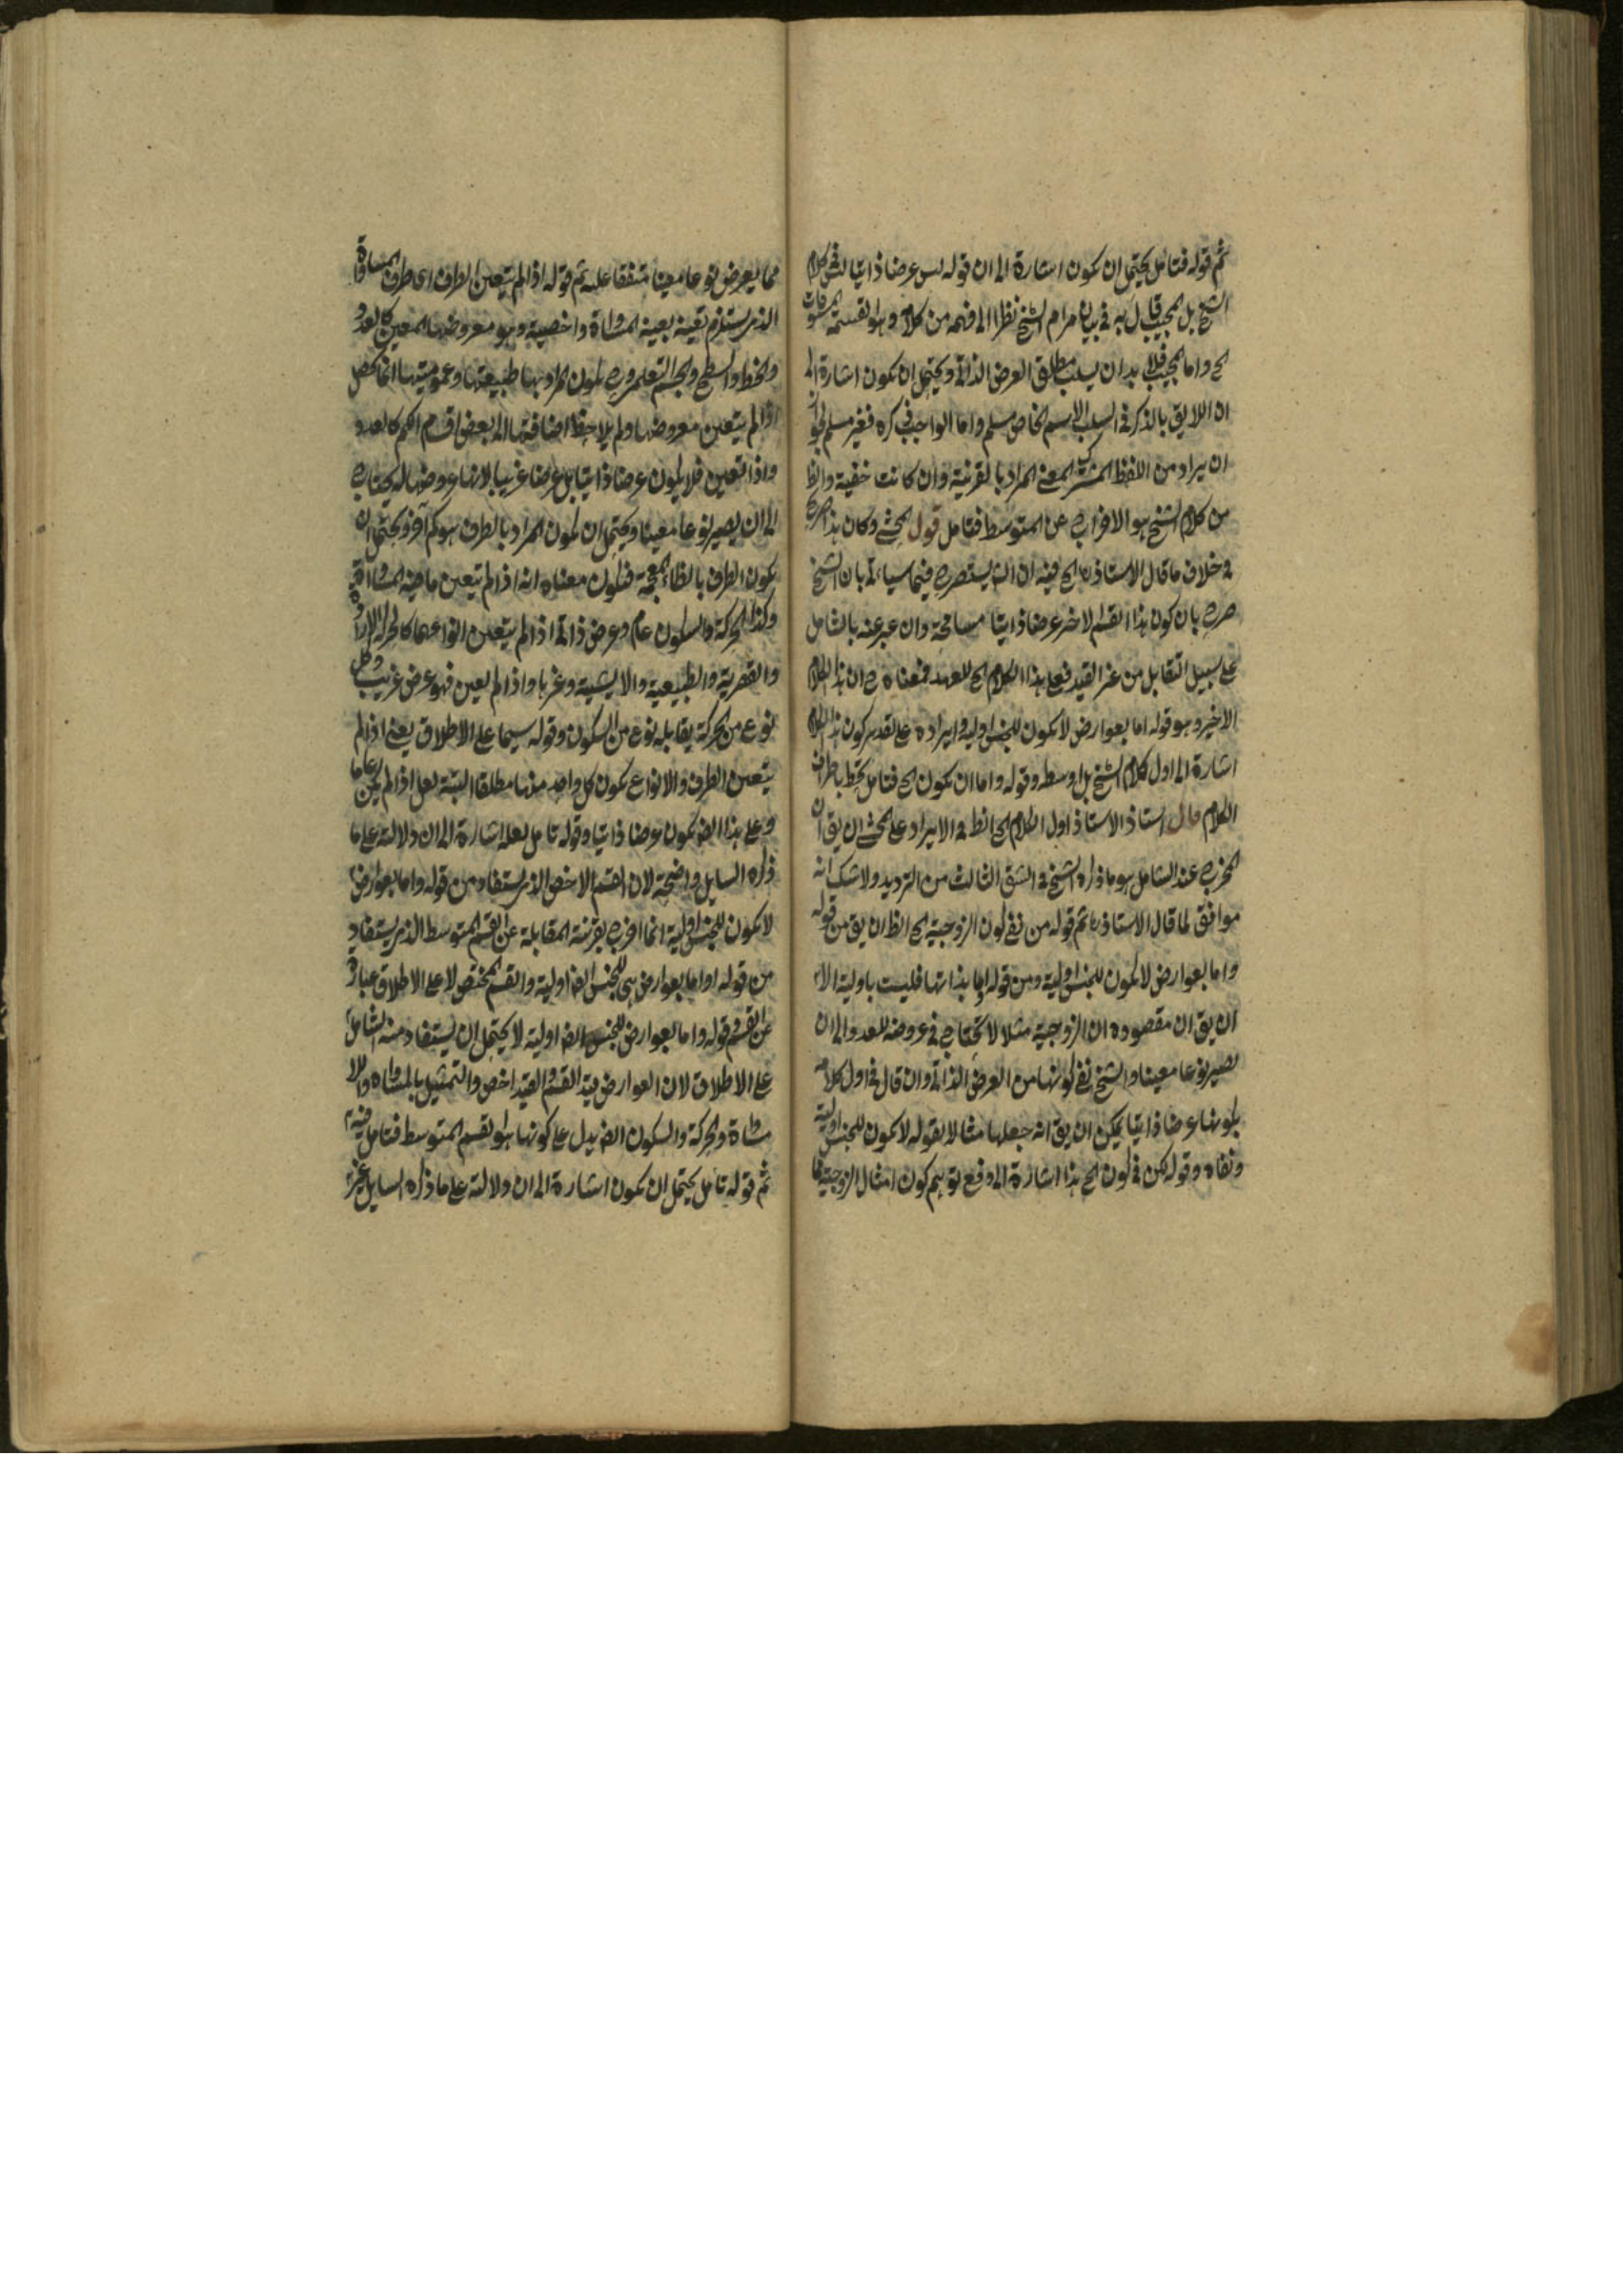 ثم قوله فتامل يحتمل ان يكون اشارة الى ان قوله ليس عرضا ذاتيا كلام
الشيخ بل المجيب قال به في بيان مرام الشيخ نظرا الى فهمه من كلامه وهو القسمة
الخ واما المجيب فلا بد ان يسلب مطلق العرض الذاتي ويحتمل ان يكون اشارة الى
ان اللايق بالذكر في السلب الاسم الخاص مسلم واما الواجب ذكره فغير مسلم لجواز
ان يراد من اللفظ المشترك المعنى المراد بالقرينة وان كانت خفية والظ
من كلام الشيخ هو الافراج عن المتوسط فتامل قول المحشي وكان هذا
في خلاف ما قال الاستاذ ره الخ فيه ان فيما سياتي بان الشيخ
صرح بان كون هذا القسم الاخر عرضا ذاتيا مسامحة وان عبر عنه بالشامل
على سبيل التقابل من غير القيد فعلى هذا الكلام الخ للعهد فمعناه ح ان هذا الكلام
الاخير وهو قوله اما بعوارض لا يكون للجنس اولية وايراده على تقدير كون هذا الكلام
اشارة الى اول كلام الشيخ بل اوسطه وقوله واما ان يكون الخ فتامل تحط باطراف
الكلام قال استاذ الاستاذ اول الكلام الخ الظ في الايراد على المحشي ان يق ان
المخرج عند الشامل هو ما ذكره الشيخ في الشق الثالث من الترديد ولا شك انه
موافق لما قال الاستاذ ره ثم قوله من نفي كون الزوجية الخ الظ ان يق من قوله
واما بعوارض لا يكون للجنس اولية ومن قوله اما بذاتها فليست باولية الا
ان يق ان مقصوده ان الزوجية مثلا لا تحتاج في عروضه للعدد الى ان
يصير نوعا معينا والشيخ نفى كونها من العرض الذاتي وان قال في اول كلامه
بكونها عرضا ذاتيا يمكن ان يق انه جعلها مثالا لقوله لا يكون للجنس اولية
ونفاه وقوله لكن في كون الخ هذا اشارة الى دفع توهم كون امثال الزوجية مما
مما يعرض نوعا معينا متفقا عليه ثم قوله اذا لم يتعين الطرف اي طرف المساواة
الذي يستلزم تعينه بعينه المساواة واخصيته وهو معروضها المعين كالعدد
والخط والسطح والجسم التعليمي وح يكون المراد بها طبيعتها وعموميتها انما يحصل
اذا لم يتعين معروضها ولم يلاحظ اضافتها الى بعض اقسام الكم كالعدد
واذا تعين فلا يكون عرضا ذاتيا بل عرضا غريبا لانها عروضها له يحتاج
الى ان يصير نوعا معينا ويحتمل ان يكون المراد بالطرف هو كم آخر ويحتمل ان
يكون الظرف بالظاء المعجمة فيكون معناه انه اذا لم يتعين ما فيه المساواة
وكذا الحركة والسكون عام وعرض ذاتي اذا لم يتعين انواعهما كالحركة الارادية
والقصرية والطبيعية والاينية وغيرها واذا لم يعين فهو عرض غريب وكل
نوع من الحركة يقابله نوع من السكون وقوله سيما على الاطلاق يعني اذا لم
يتعين الطرف والانواع يكون كل واحد منها مطلقا البتة لعل اذا لم يكن عاما
وعلى هذا ايضا يكون عرضا ذاتيا وقوله تامل لعله اشارة الى ان دلالته على ما
ذكره السايل واضحة لان القسم الاخص الذي يستفاد من قوله واما بعوارض
لا يكون للجنس اولية انما اخرج بقرينة المقابلة عن القسم المتوسط الذي يستفاد
من قوله او اما بعوارض هي للجنس ايضا اولية والقسم المختص لا على الاطلاق عبارة
عن القسم وقوله واما بعوارض للجنس ايضا اولية لا يحتمل ان يستفاد منه الشامل
على الاطلاق لان العوارض قيد القسم والقيد اخص والتمثيل بالمساواة واللا
مساواة والحركة والسكون ايضا يدل على كونها هو القسم المتوسط فتامل فيه
ثم قوله تامل يحتمل ان يكون اشارة الى ان دلالته على ما ذكره السايل غير